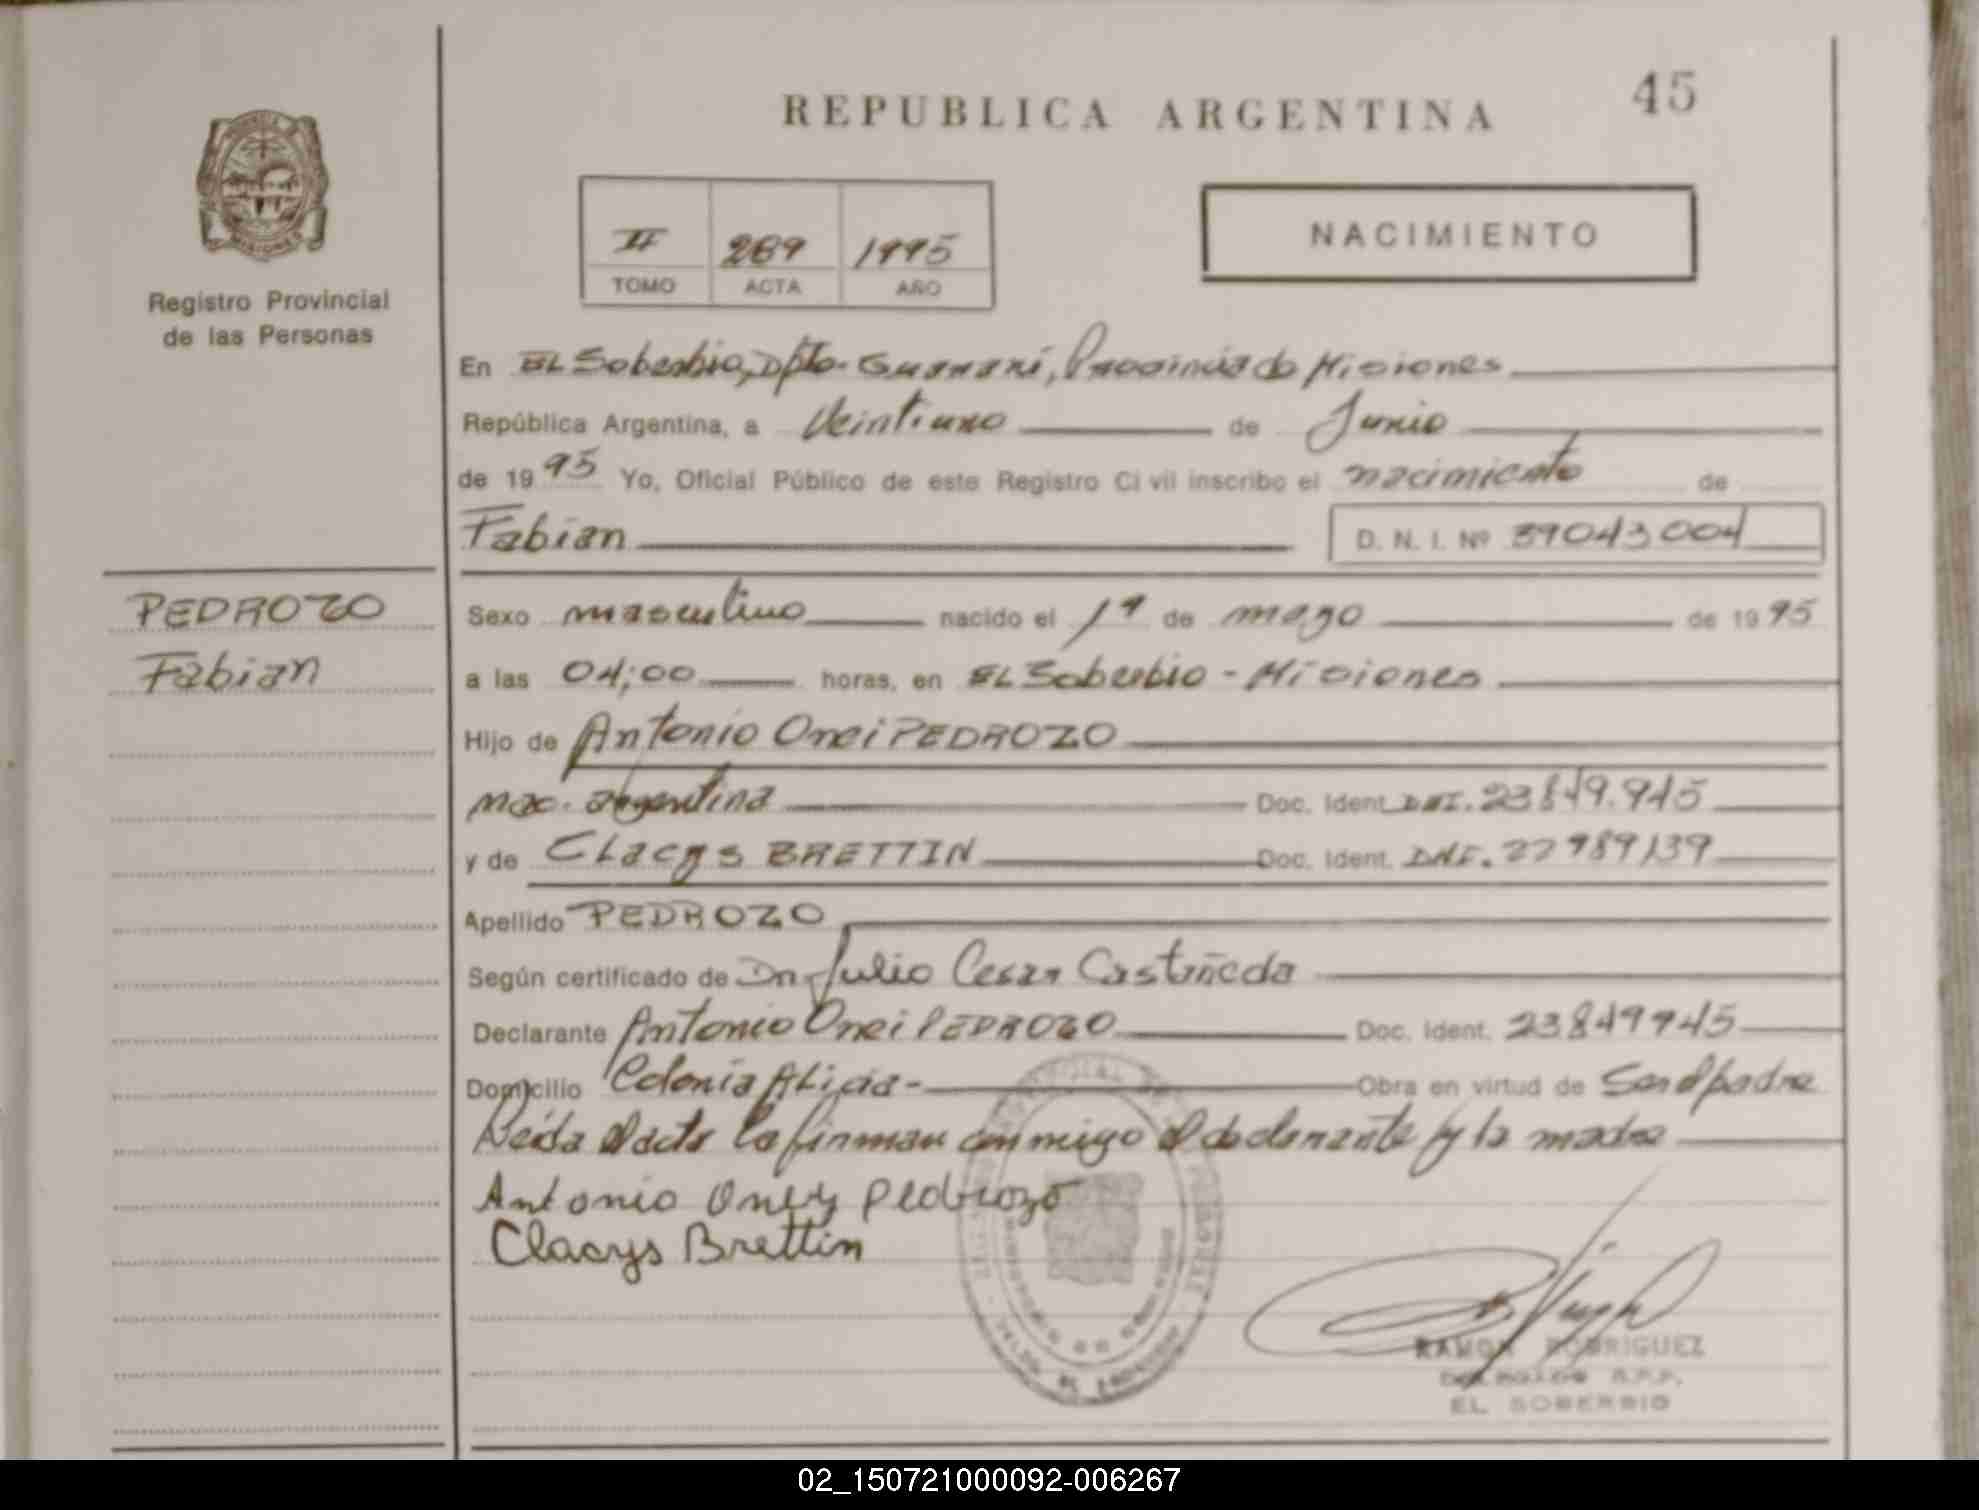 45
REPUBLICA ARGENTINA
II 289 1995
TOMO ACTA AÑO
NACIMIENTO
Registro Provincial
de las Personas
En EL Soberbio, Dpto. Guaraní, Provincia de Misiones
República Argentina, a Veintiuno de Junio
de 1995 Yo, Oficial Público de este Registro Civil inscribo el nacimiento de
Fabian D. N. I. Nº 39043004
PEDROZO
Fabian
Sexo masculino nacido el 1º de mayo de 1995
a las 04;00 horas, en EL Soberbio - Misiones
Hijo de Antonio Onei PEDROZO
nac. argentina Doc. Ident. DNI. 23849.945
y de CLacys BRETTIN Doc. Ident. DNI. 22989139
Apellido PEDROZO
Según certificado de Dr. Julio Cesar Castañeda
Declarante Antonio Onei PEDROZO Doc. Ident. 23849945
Domicilio Colonia ALicia- Obra en virtud de Ser el padre
Leída el acta la firman conmigo el declarante y la madre
Antonio Oney Pedrozo
Clacys Brettin
RAMON RODRIGUEZ
DELEGADO R.P.P.
EL SOBERBIO
02_150721000092-006267